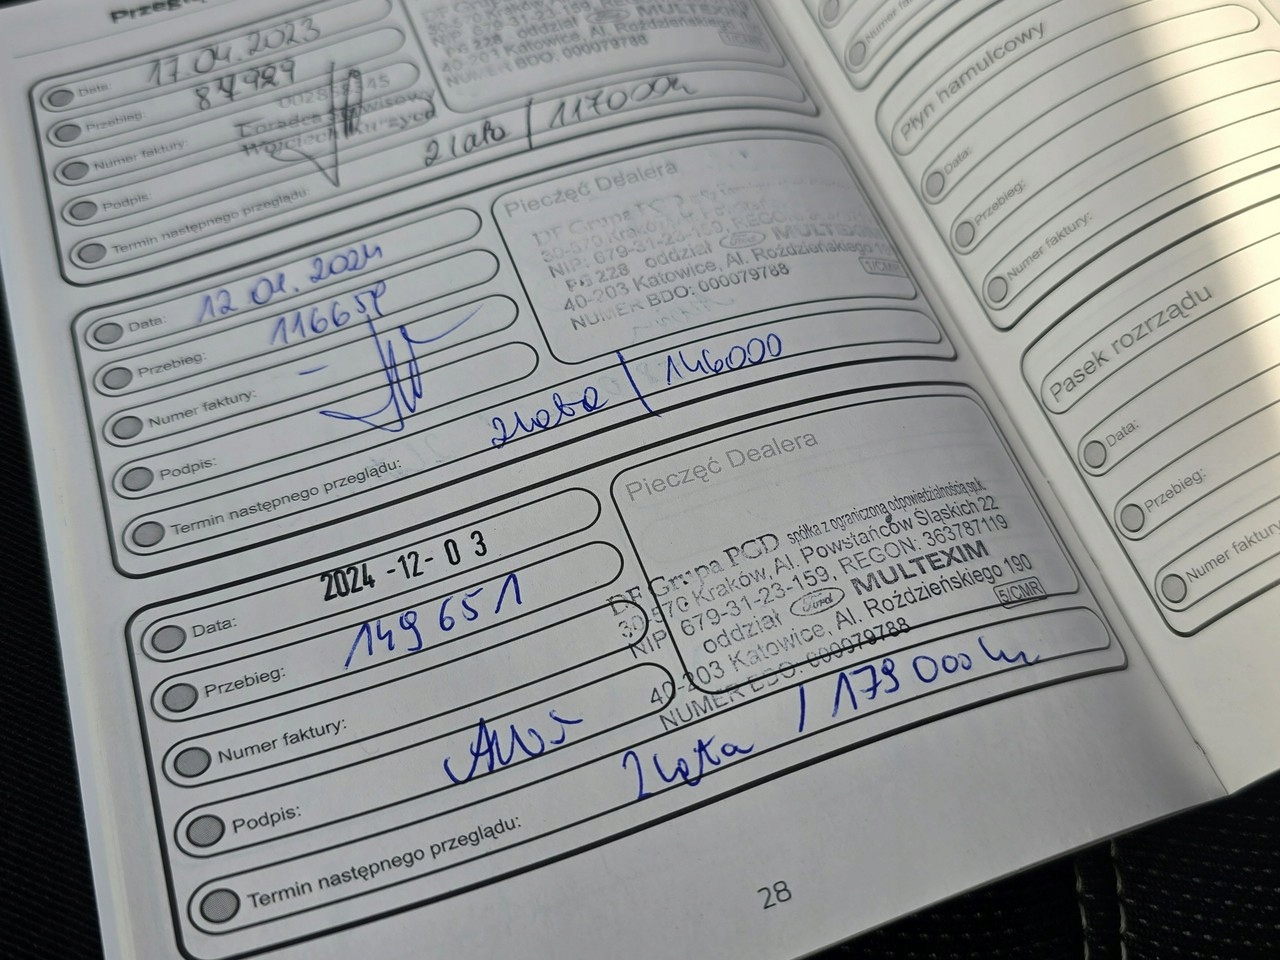 Data: 17.04.2023
Przebieg:
Numer faktury:
Podpis:
Termin następnego przeglądu: 2 lata / 117000km
oddział Ford MULTEXIM
40-203 Katowice, Al. Roździeńskiego
NUMER BDO: 000079788
Data: 12 01. 2024
Przebieg: 11665
Numer faktury: -
Podpis:
Termin następnego przeglądu: 2 lata / 146000
Pieczęć Dealera
DF Grupa
30-570 Kraków,
NIP: 679-31-23-159, REGON:
PG 228 oddział Ford MULTEXIM
40-203 Katowice, Al. Roździeńskiego
NUMER BDO: 000079788
Data: 2024-12-03
Przebieg: 149 651
Numer faktury:
Podpis:
Termin następnego przeglądu: 2 lata / 179 000 km
Pieczęć Dealera
DF Grupa PGD spółka z ograniczoną odpowiedzialnością sp.k.
30-570 Kraków, Al. Powstańców Śląskich 22
NIP 679-31-23-159, REGON: 363787119
oddział Ford MULTEXIM
40-203 Katowice, Al. Roździeńskiego 190
NUMER BDO: 000079788
5/CMR
28
Numer
Płyn hamulcowy
Data:
Przebieg:
Numer faktury:
Pasek rozrządu
Data:
Przebieg:
Numer faktury